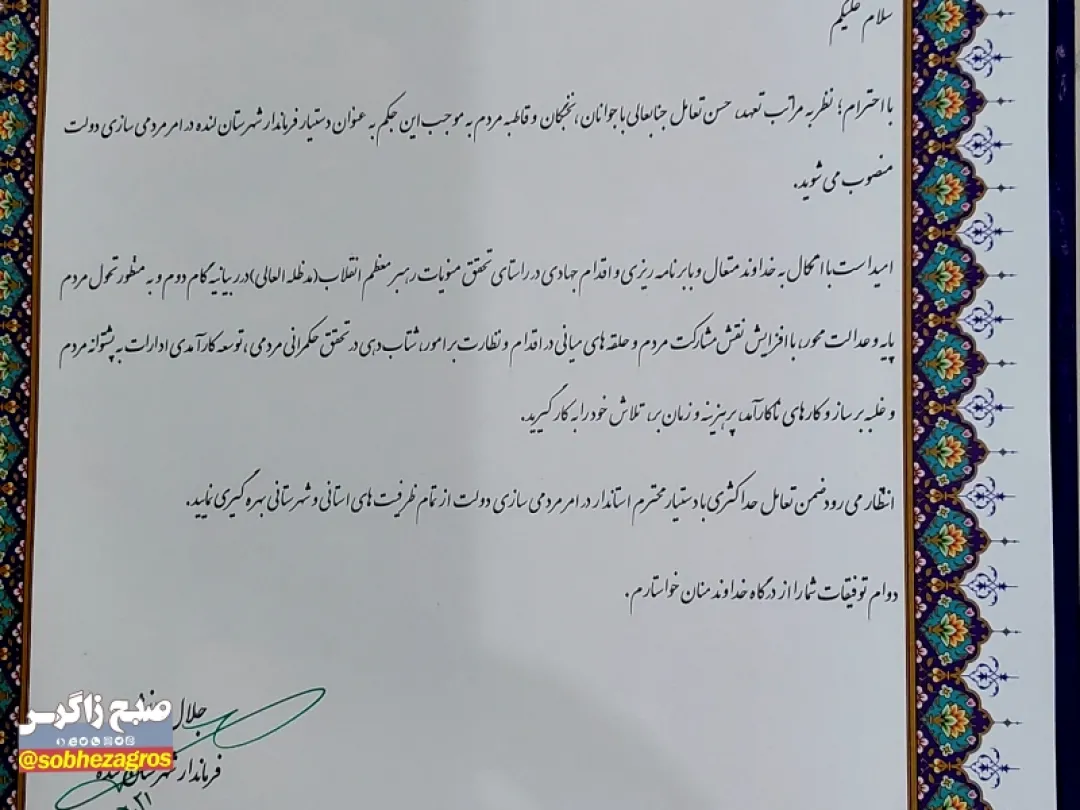 سلام علیکم
با احترام؛ نظر به مراتب تعهد، حسن تعامل جنابعالی با جوانان، نخبگان و قاطبه مردم به موجب این حکم به عنوان دستیار فرماندار شهرستان لنده در امر مردمی سازی دولت
منصوب می شوید.
امید است با اتکال به خداوند متعال و با برنامه ریزی و اقدام جهادی در راستای تحقق منویات رهبر معظم انقلاب (مدظله العالی) در بیانیه گام دوم و به منظور تحول مردم
پایه و عدالت محور، با افزایش نقش مشارکت مردم و حلقه های میانی در اقدام و نظارت بر امور، شتاب دهی در تحقق حکمرانی مردمی، توسعه کارآمدی ادارات به پشتوانه مردم
و غلبه بر ساز و کارهای ناکارآمد، پرهزینه و زمان بر، تلاش خود را به کار گیرید.
انتظار می رود ضمن تعامل حداکثری با دستیار محترم استاندار در امر مردمی سازی دولت از تمام ظرفیت های استانی و شهرستانی بهره گیری نمایید.
دوام توفیقات شما را از درگاه خداوند منان خواستارم.
جلال
فرماندار شهرستان لنده
صبح زاگرس
@sobhezagros